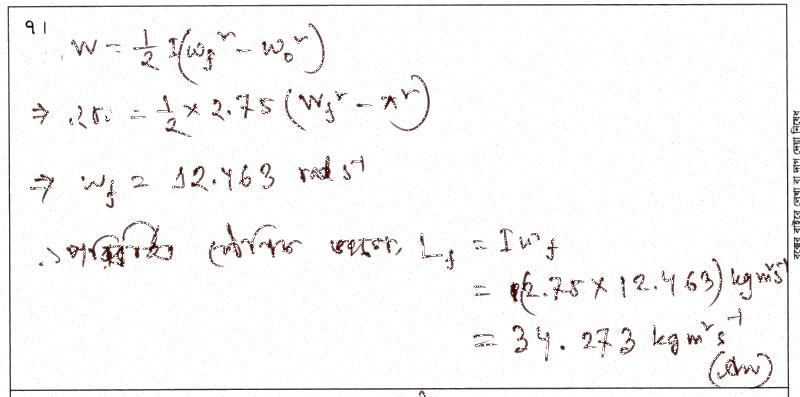 ৭।
W = 1/2 I(ω_f² - ω_o²)
⇒ ২৫০ = 1/2 × 2.75 (W_f² - π²)
⇒ ω_f = 12.463 rad s⁻¹
∴ পরিবর্তিত কৌণিক ভরবেগ, L_f = I ω_f
= (2.75 × 12.463) kg m² s⁻¹
= 34.273 kg m² s⁻¹
(Ans)
বক্সের বাইরে লেখা বা দাগ দেয়া নিষেধ